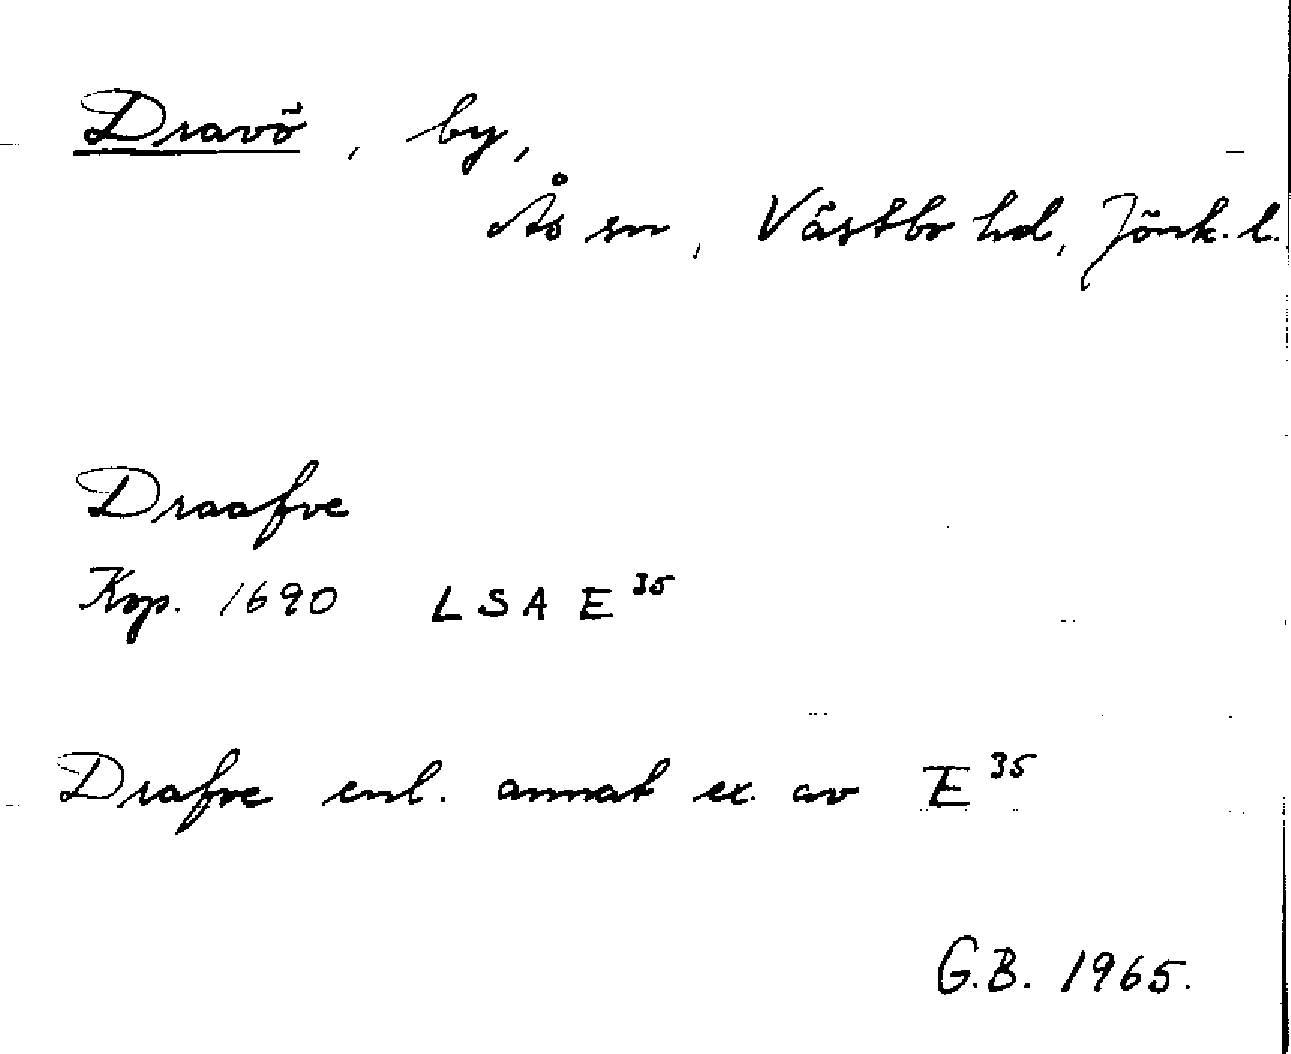 Dravö, by,
Ås sn, Västbo hd, Jönk. l.
Draafve
Kop. 1690 LSA E³⁵
Drafve enl. annat ex. av E³⁵
G.B. 1965.